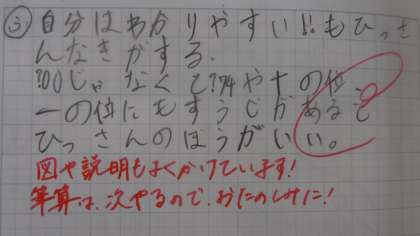 う 自分はわかりやすい!!もひっさ
んなきがする.
?00じゃなくて?94や十の位
一の位にもすうじがあると
ひっさんのほうがいい。
図や説明もよくかけています!
筆算は、次やるので、おたのしみに!